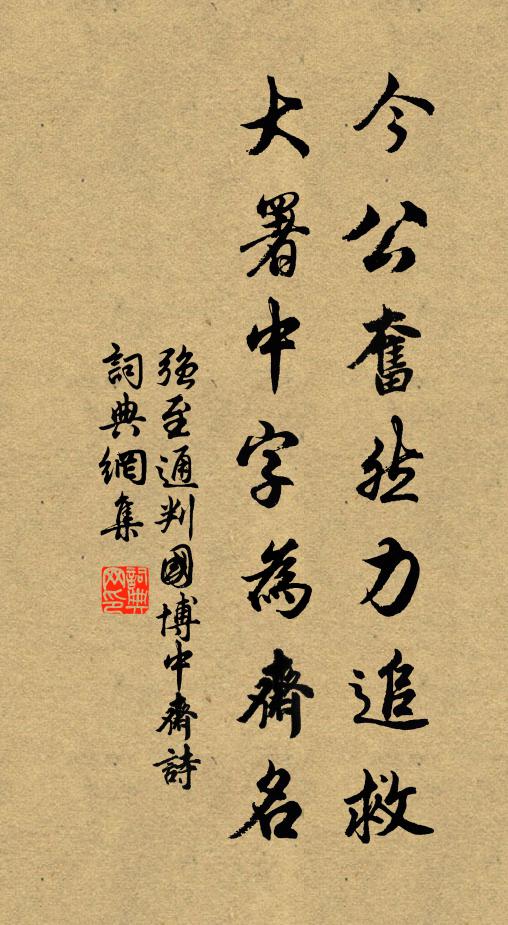 今公奮然力追救
大署中字為齋名
強至通判國博中齋詩
詞典網集
詞典网印